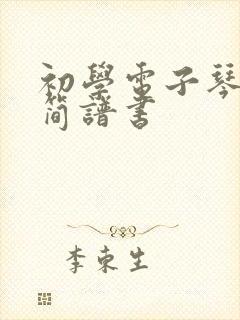 初學電子琴
簡譜書
李東生